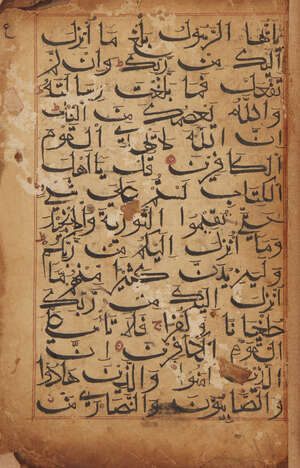 ع
يا ايها الرسول بلغ ما انزل
اليك من ربك وان لم
تفعل فما بلغت رسالته
والله يعصمك من الناس
ان الله لا يهدي القوم
الكافرين قل يا اهل
الكتاب لستم على شي
حتى تقيموا التورية والانجيل
وما انزل اليكم من ربكم
وليزيدن كثيرا منهم ما
انزل اليك من ربك
طغيانا وكفرا فلا تأس
القوم الكافرين ان
الذين امنوا والذين هادوا
والصابئون والنصارى من